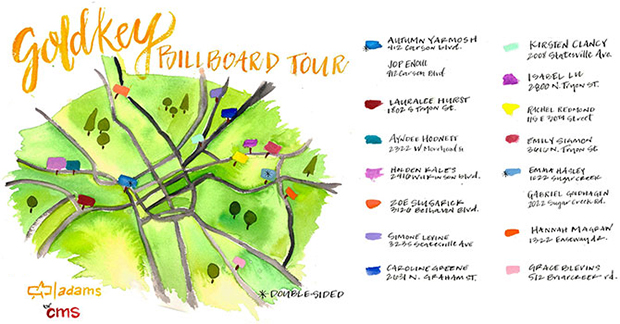 Gold Key
BILLBOARD TOUR
AUTUMN YARMOSH
912 Carson blvd.
912 Carson Blvd
LAURALEE HURST
1802 S Tryon St.
2322 W Morehead St
HOLDEN KALES
2910 Wilkinson blvd.
3120 Belhaven Blvd.
SIMONE LEVINE
3235 Statesville Ave
CAROLINE GREENE
2031 N. GRAHAM ST.
KIRSTEN CLANCY
2008 Statesville Ave.
ISABEL LU
2800 N. Tryon St.
RACHEL REDMOND
115 E 30th Street
EMILY SIGMON
3601 N. Tryon St
EMMA HASLEY
1022 Sugarcreek
GABRIEL GOLDHAGEN
2022 Sugar Creek Rd.
HANNAH MAGRAW
1322 Eastway dr.
GRACE BLEVINS
512 Briarcreek rd.
* DOUBLE-SIDED
adams
cms